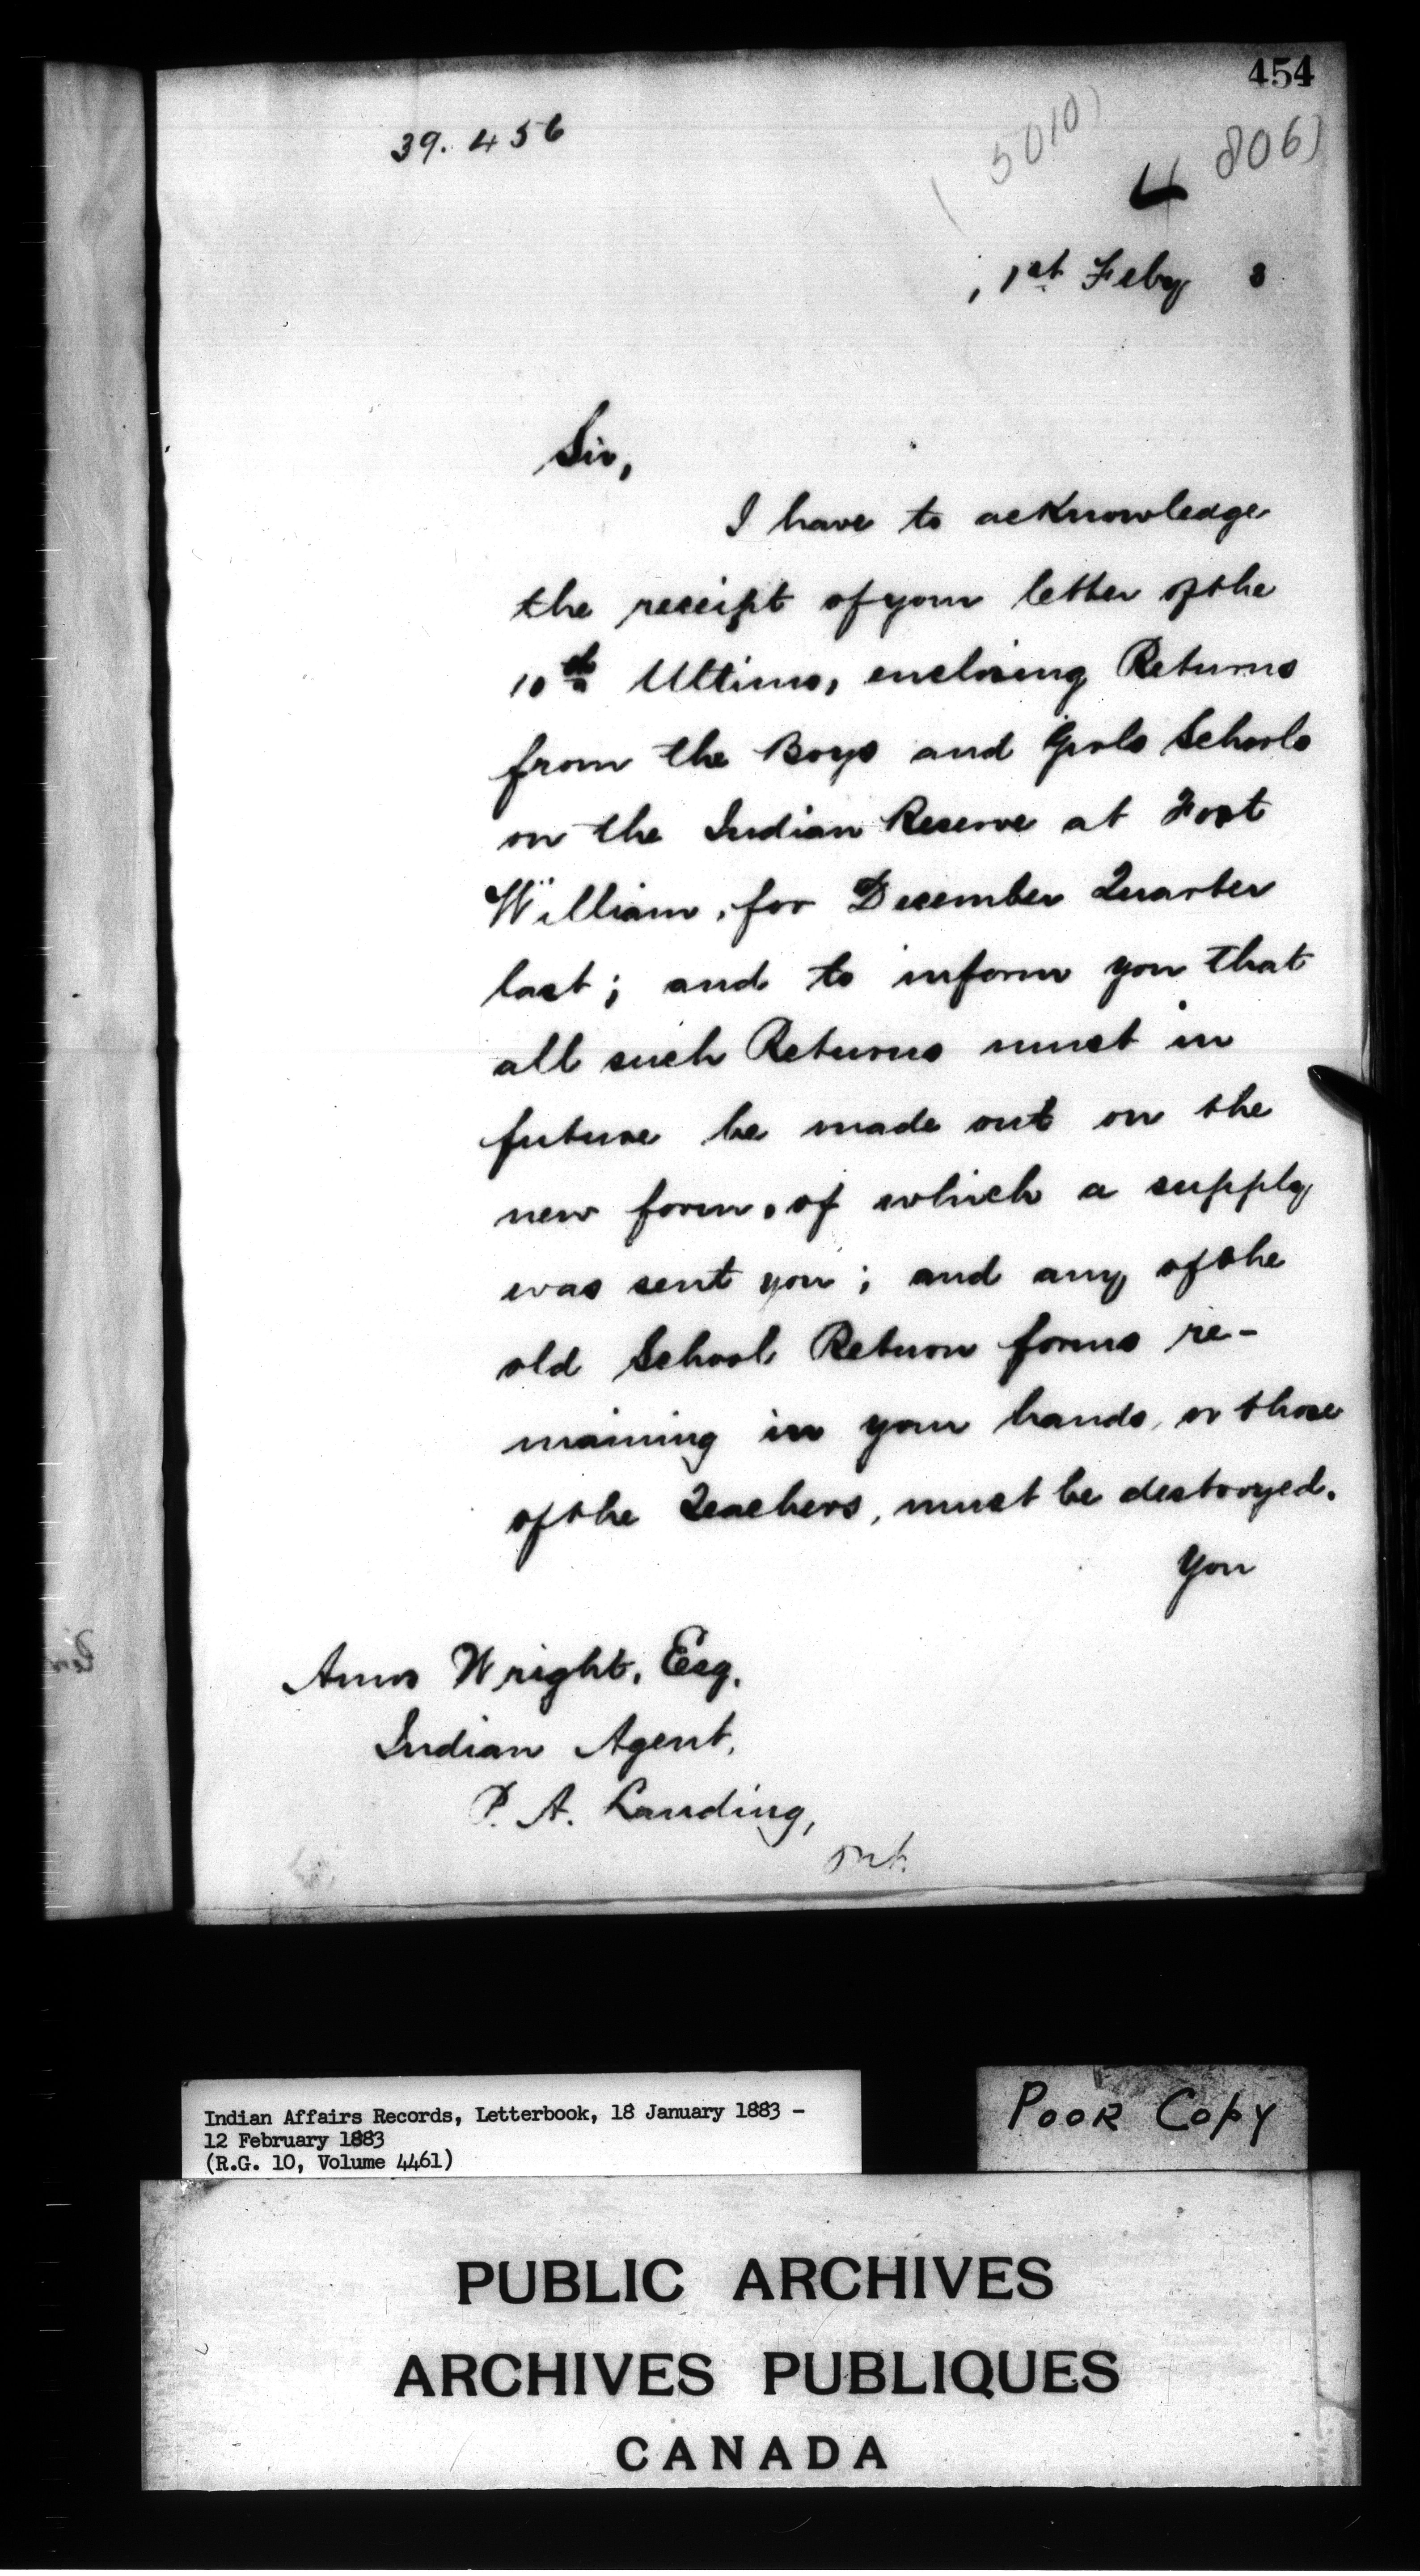 454
39.456
5010)
4 806)
1st Feby 3
Sir,
I have to acknowledge
the receipt of your letter of the
10th Ultimo, enclosing Returns
from the Boys and Girls Schools
on the Indian Reserve at Fort
William, for December Quarter
last; and to inform you that
all such Returns must in
future be made out on the
new form, of which a supply
was sent you; and any of the
old School Return forms re-
maining in your hands, or those
of the Teachers, must be destroyed.
You
Amos Wright, Esq.
Indian Agent,
P. A. Landing,
Ont.
Indian Affairs Records, Letterbook, 18 January 1883 -
12 February 1883
(R.G. 10, Volume 4461)
POOR COPY
PUBLIC ARCHIVES
ARCHIVES PUBLIQUES
CANADA